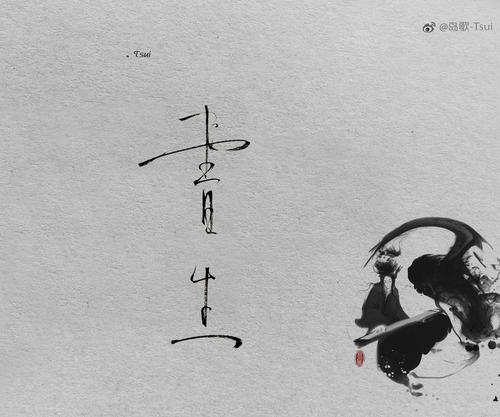 @岛歌-Tsui
Tsui
書生